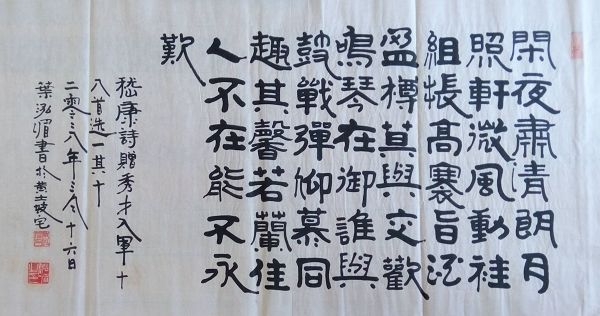 閑夜肅清朗月
照軒微風動袿
組帳高褰旨酒
盈樽莫與交歡
鳴琴在御誰與
鼓戰彈仰慕同
趣其馨若蘭佳
人不在能不永
歎
嵇康詩贈秀才入軍十
八首选一其十
二零一八年三月十六日
葉泓湄書於黄土坡宅